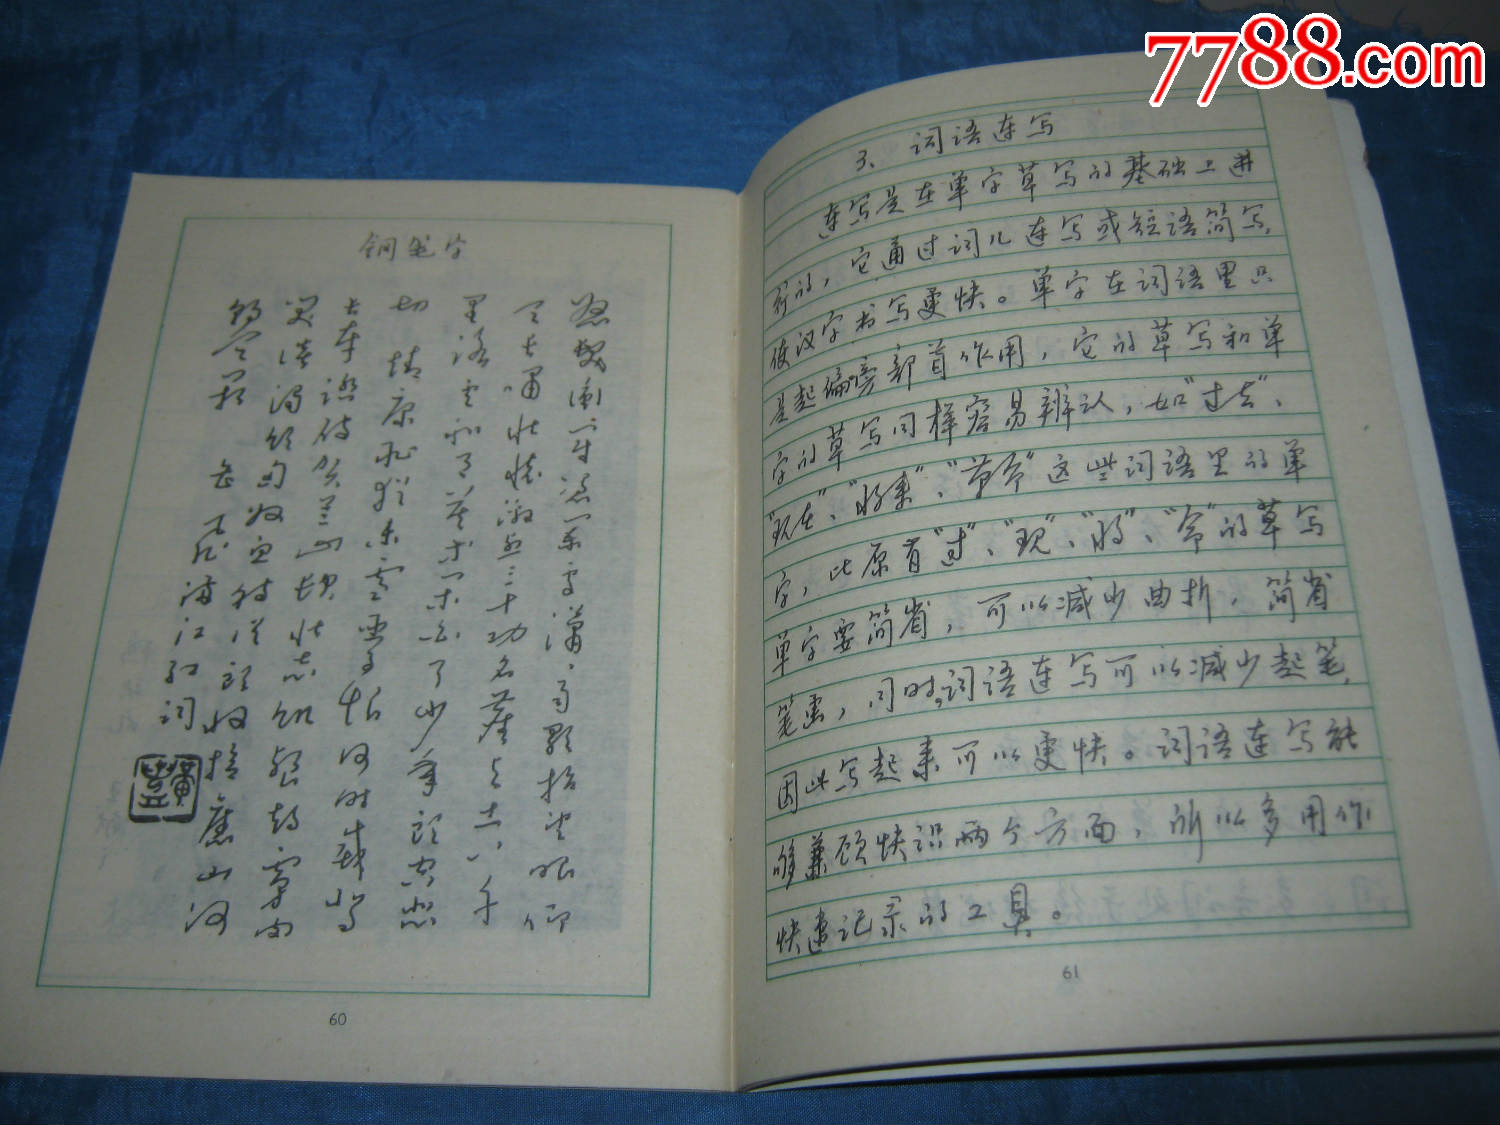 7788.com
钢笔字
怒发冲冠凭栏处潇、雨歇抬望眼仰
天长啸壮怀激烈三十功名尘与土八千
里路云和月莫等闲白了少年头空悲
切 靖康耻犹未雪臣子恨何时灭驾
长车踏破贺兰山缺壮志饥餐胡虏肉
笑谈渴饮匈奴血待从头收拾旧山河
朝天阙 岳飞满江红词
60
3、词语连写
连写是在单字草写的基础上进
行的，它通过词儿连写或短语简写，
使汉字书写更快。单字在词语里只
是起偏旁部首作用，它的草写和单
字的草写同样容易辨认，如“过去”、
“现在”、“将来”、“革命”这些词语里的单
字，比原有“过”、“现”、“将”、“命”的草写
单字要简省，可以减少曲折，简省
笔画，同时词语连写可以减少起笔，
因此写起来可以更快。词语连写能
够兼顾快识两个方面，所以多用作
快速记录的工具。
61